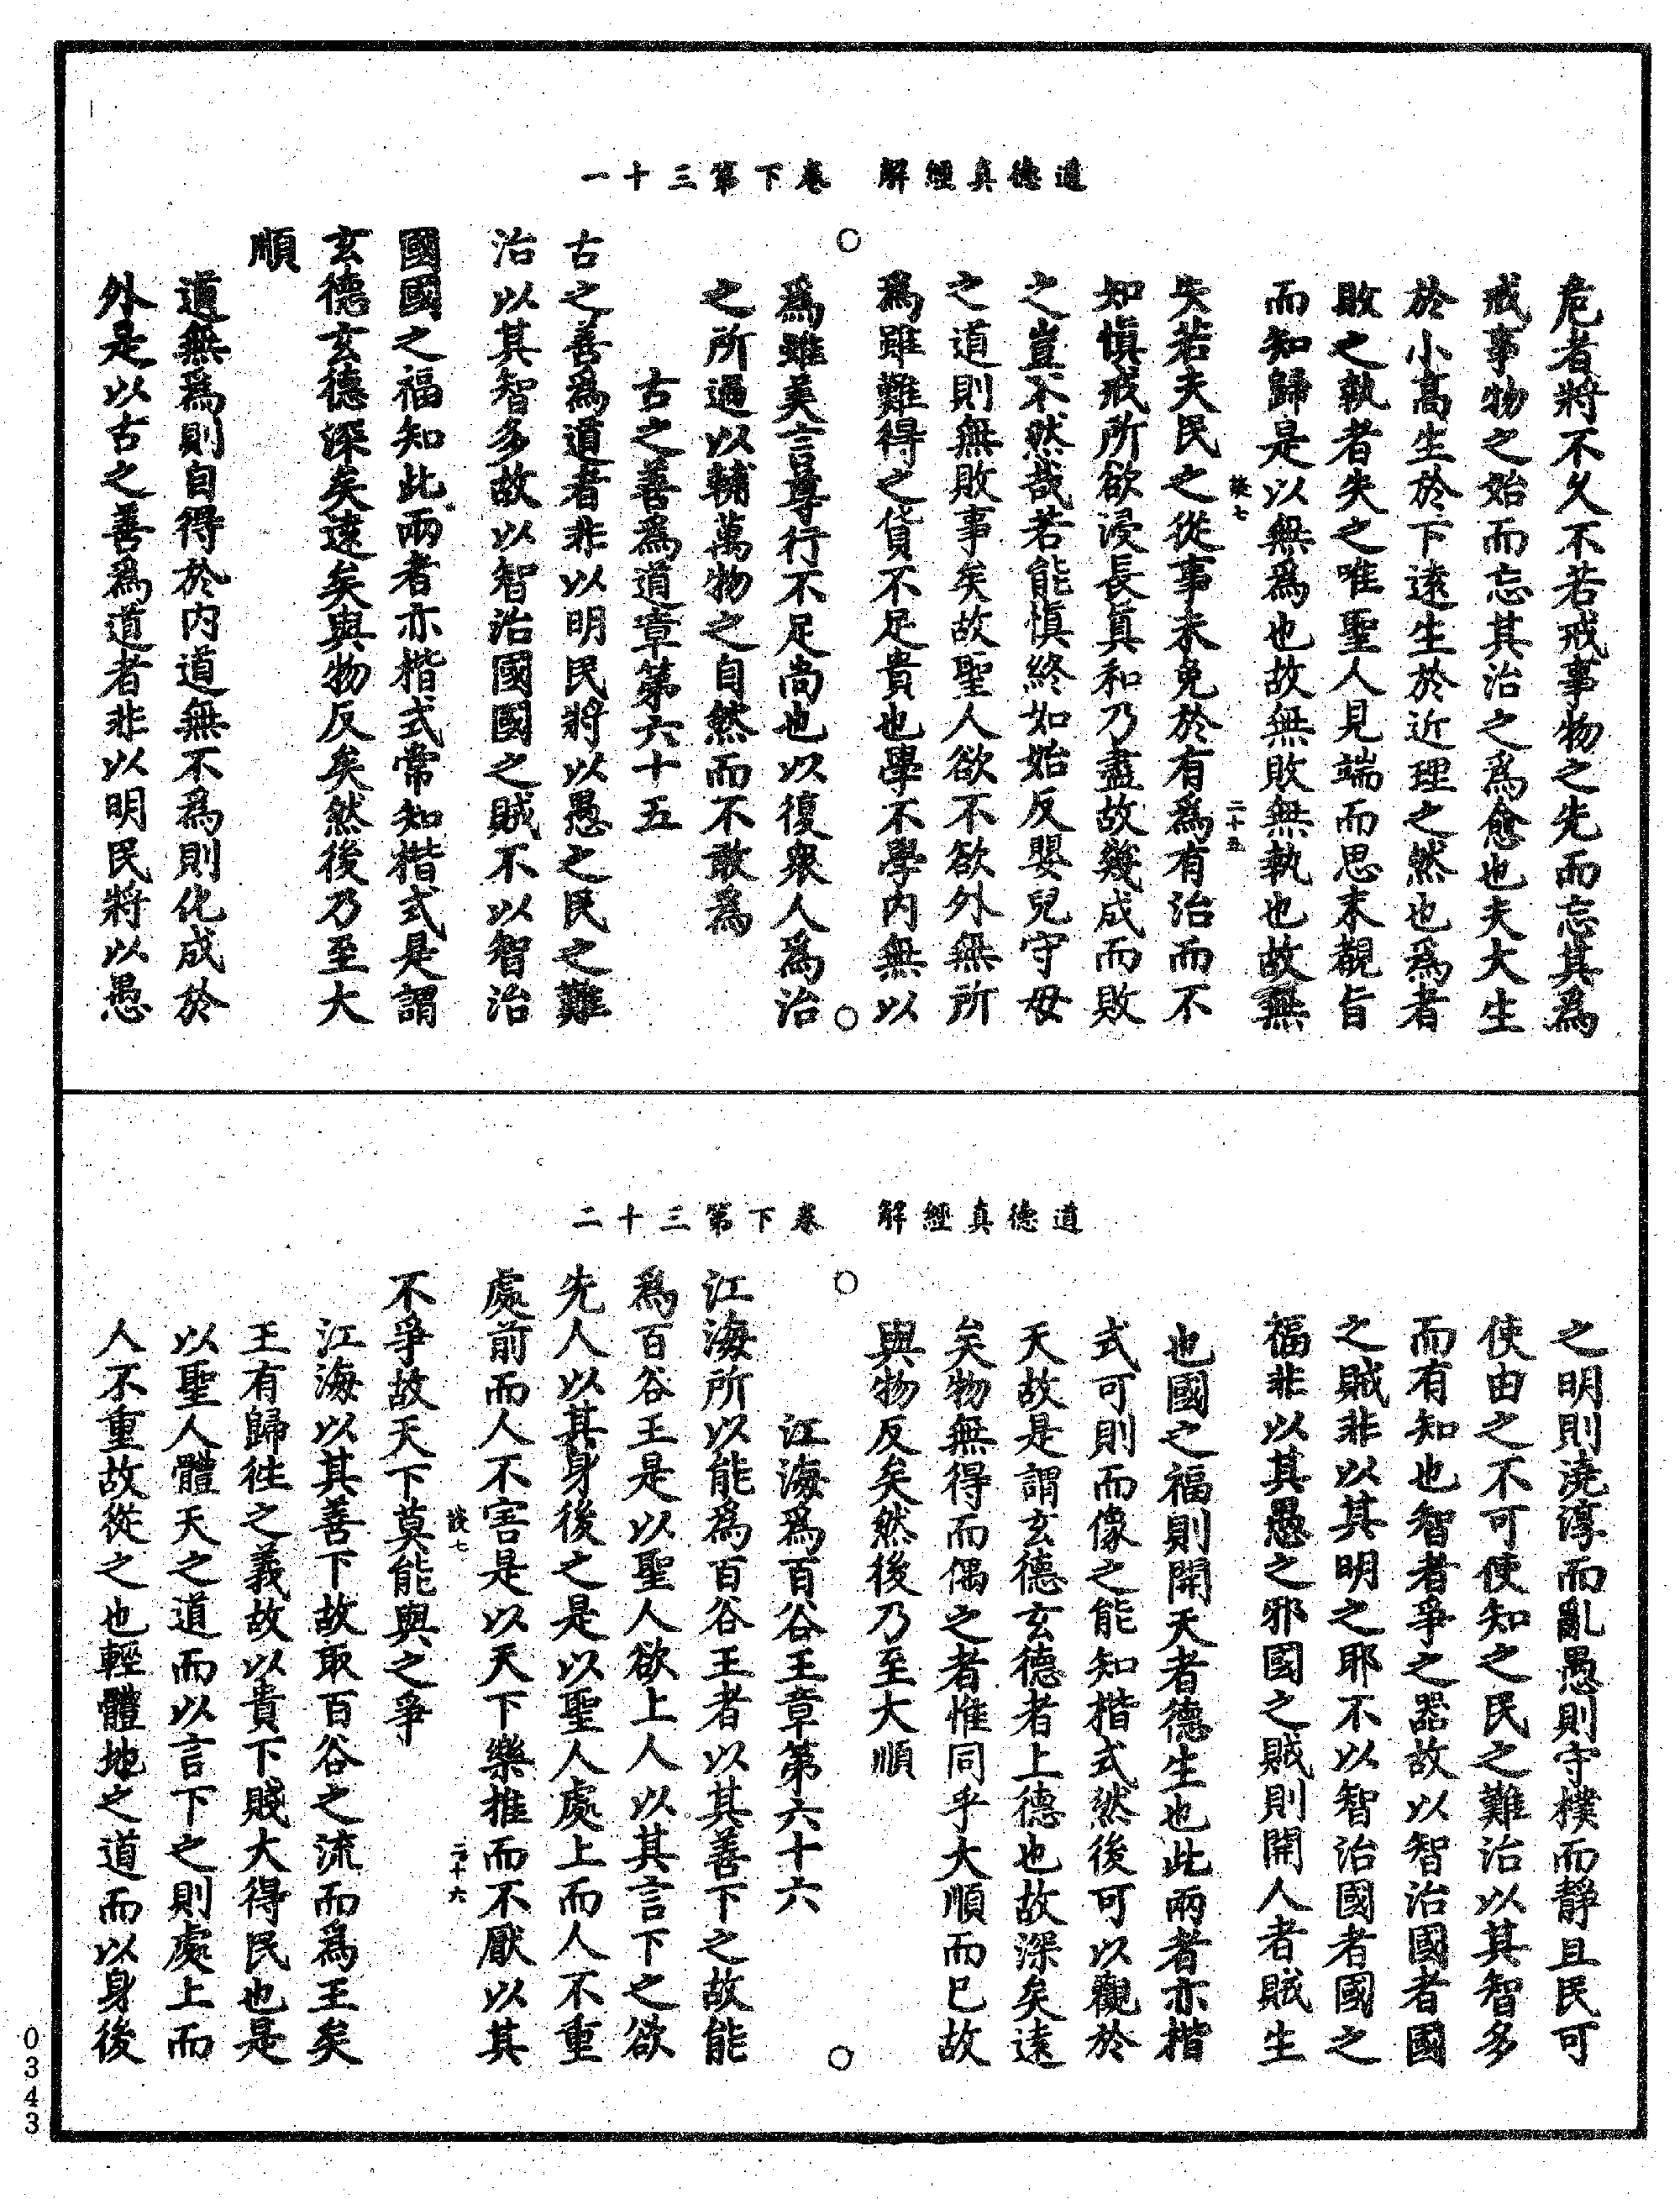 道德真經解　卷下第三十一
危者將不久不若戒事物之先而忘其為
戒事物之始而忘其治之為愈也夫大生
於小高生於下遠生於近理之然也為者
敗之執者失之唯聖人見端而思末覩旨
而知歸是以無為也故無敗無執也故無
談七　二十五
失若夫民之從事未免於有為有治而不
知慎戒所欲浸長真和乃盡故幾成而敗
之豈不然哉若能慎終如始反嬰兒守母
之道則無敗事矣故聖人欲不欲外無所
為雖難得之貨不足貴也學不學內無以
為雖美言尊行不足尚也以復眾人為治
之所過以輔萬物之自然而不敢為
古之善為道章第六十五
古之善為道者非以明民將以愚之民之難
治以其智多故以智治國國之賊不以智治
國國之福知此兩者亦楷式常知楷式是謂
玄德玄德深矣遠矣與物反矣然後乃至大
順
道無為則自得於內道無不為則化成於
外是以古之善為道者非以明民將以愚
道德真經解　卷下第三十二
之明則澆淳而亂愚則守樸而靜且民可
使由之不可使知之民之難治以其智多
而有知也智者爭之器故以智治國者國
之賊非以其明之耶不以智治國者國之
福非以其愚之邪國之賊則開人者賊生
也國之福則開天者德生也此兩者亦楷
式可則而像之能知楷式然後可以觀於
天故是謂玄德玄德者上德也故深矣遠
矣物無得而偶之者惟同乎大順而已故
與物反矣然後乃至大順
江海為百谷王章第六十六
江海所以能為百谷王者以其善下之故能
為百谷王是以聖人欲上人以其言下之欲
先人以其身後之是以聖人處上而人不重
處前而人不害是以天下樂推而不厭以其
談七　二十六
不爭故天下莫能與之爭
江海以其善下故取百谷之流而為王矣
王有歸往之義故以貴下賤大得民也是
以聖人體天之道而以言下之則處上而
人不重故從之也輕體地之道而以身後
0343